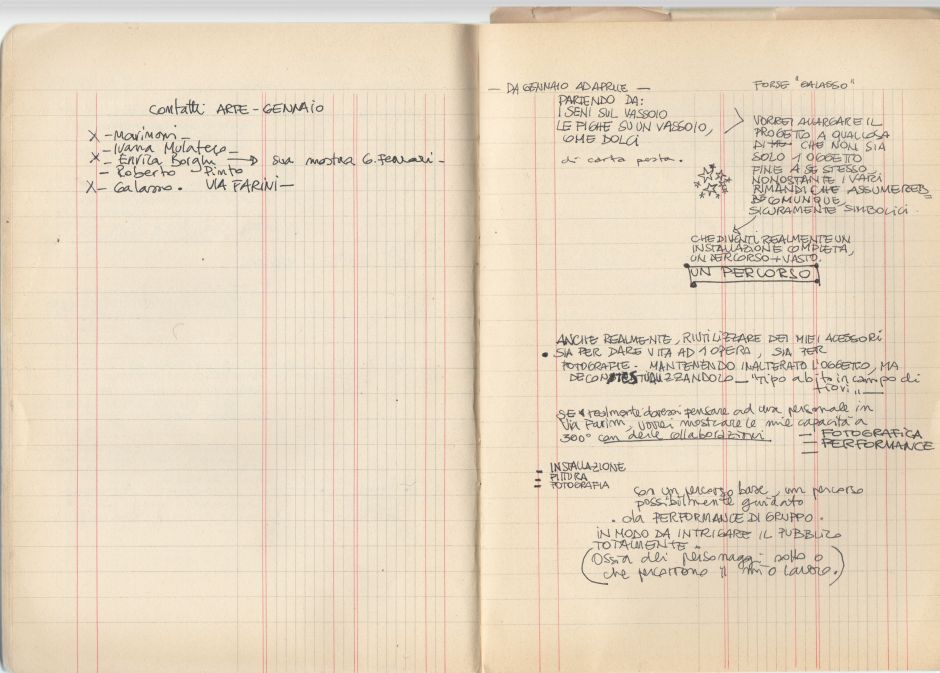 Contatti ARTE - GENNAIO
X - Marimoni -
- Ivana Mulatero -
X - Enrica Borghi → sua mostra G. Ferrari -
- Roberto Pinto
X - Galasso. VIA FARINI -
- DA GENNAIO AD APRILE -
PARTENDO DA:
I SENI SUL VASSOIO
LE FIGHE SU UN VASSOIO,
COME DOLCI
di carta pesta.
FORSE "GALASSO"
VORREI ALLARGARE IL
PROGETTO A QUALCOSA
DI CHE NON SIA
SOLO 1 OGGETTO
FINE A SE STESSO,
NONOSTANTE I VARI
RIMANDI CHE ASSUMEREB
BE COMUNQUE,
SICURAMENTE SIMBOLICI.
CHE DIVENTI REALMENTE UN
INSTALLAZIONE COMPLETA,
UN PERCORSO + VASTO.
UN PERCORSO
ANCHE REALMENTE, RIUTILIZZARE DEI MIEI ACESSORI
• SIA PER DARE VITA AD 1 OPERA, SIA PER
FOTOGRAFIE - MANTENENDO INALTERATO L'OGGETTO, MA
DECONTESTUALIZZANDOLO - "Tipo abito in campo di
fiori" -
SE realmente dovessi pensare ad una personale in
Via Farini, vorrei mostrare le mie capacità a
300° con delle collaborazioni
- FOTOGRAFICA
- PERFORMANCE
- INSTALLAZIONE
- PITTURA
- FOTOGRAFIA
con un percorso base, un percorso
possibilmente guidato
. da PERFORMANCE DI GRUPPO.
IN MODO DA INTRIGARE IL PUBBLICO
TOTALMENTE -
(Ossia dei personaggi sotto o
che percorrono il mio lavoro.)